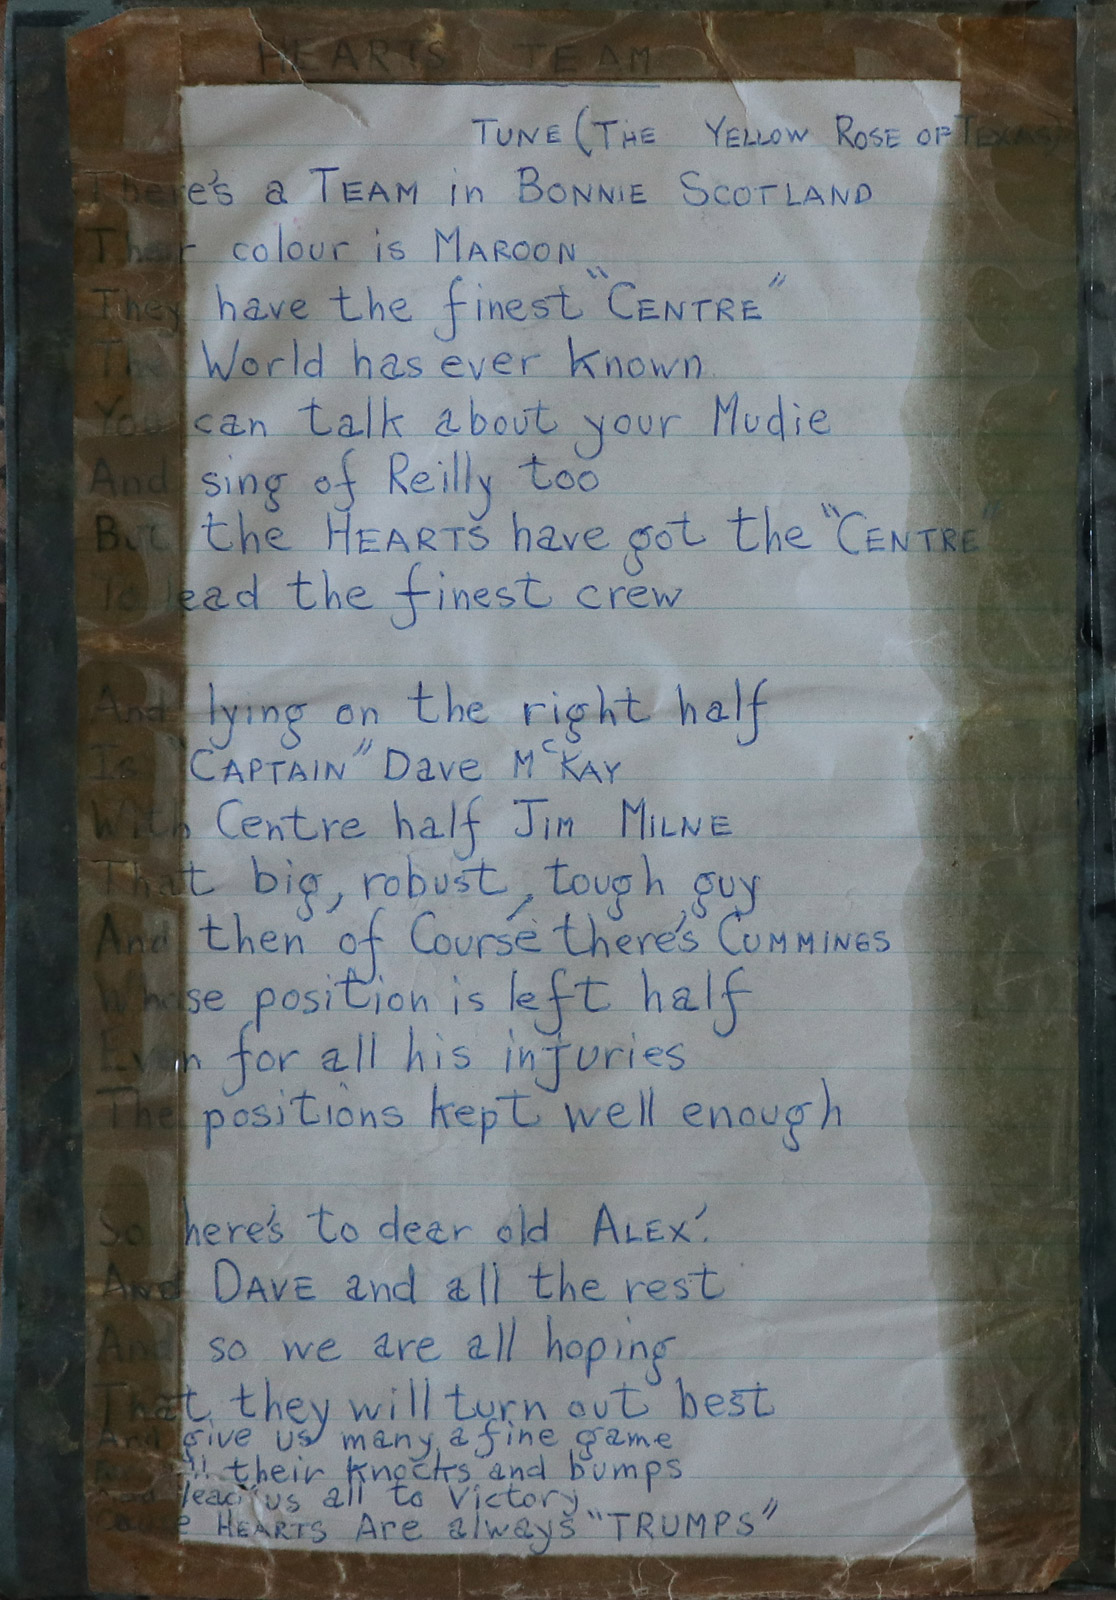 HEARTS TEAM
TUNE (THE YELLOW ROSE OF TEXAS)
There's a TEAM in BONNIE SCOTLAND
Their colour is MAROON
They have the finest "CENTRE"
The World has ever known
You can talk about your Mudie
And sing of Reilly too
But the HEARTS have got the "CENTRE"
To lead the finest crew
And lying on the right half
Is "CAPTAIN" Dave McKAY
With Centre half JIM MILNE
That big, robust, tough guy
And then of Course there's CUMMINGS
Whose position is left half
Even for all his injuries
The positions kept well enough
So here's to dear old ALEX!
And DAVE and all the rest
And so we are all hoping
That they will turn out best
And give us many a fine game
their knocks and bumps
And lead us all to victory
Cause HEARTS Are always "TRUMPS"